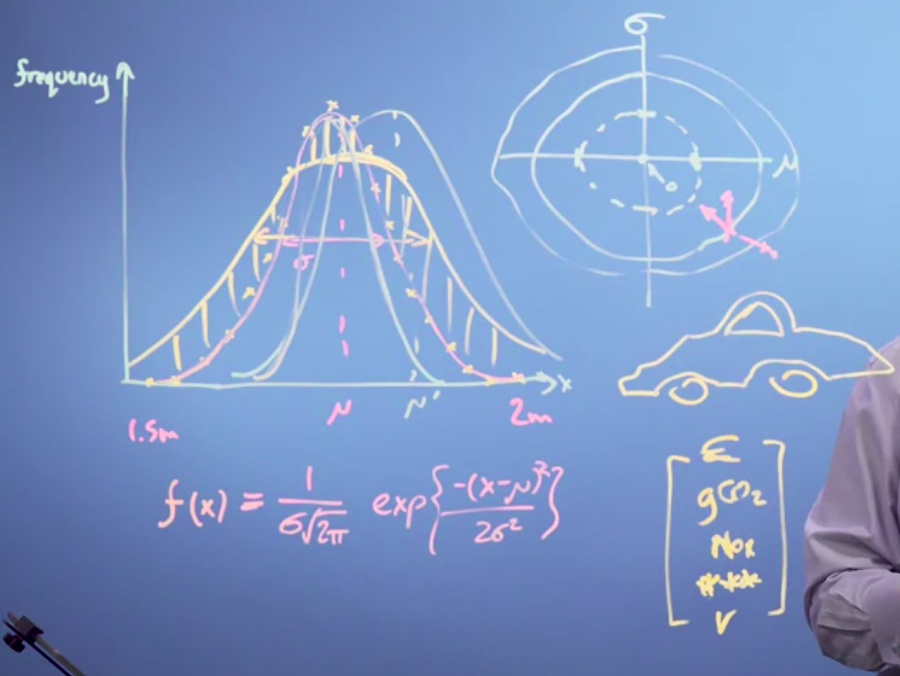 frequency
σ
μ
σ
x
1.5m
μ
μ'
2m
f(x) = 1/σ√2π exp{-(x-μ)²/2σ²}
£
gCO₂
NOx
V